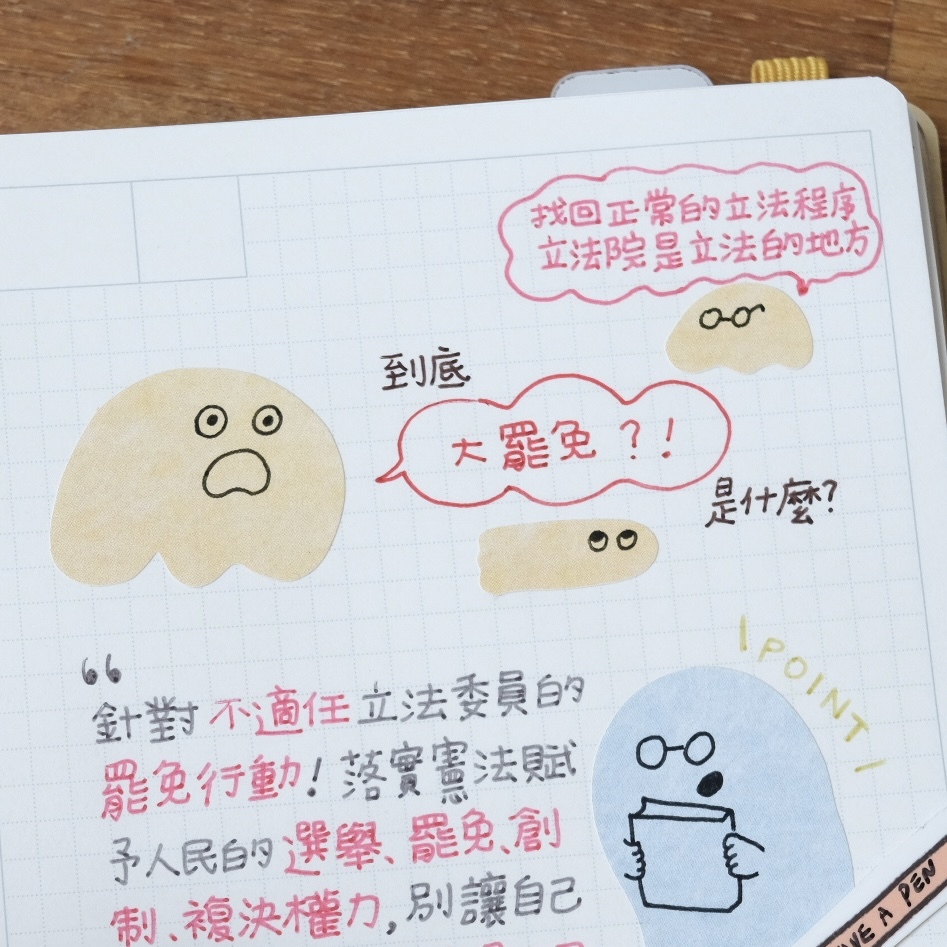 找回正常的立法程序
立法院是立法的地方
到底
大罷免?!
是什麼?
POINT
針對不適任立法委員的
罷免行動!落實憲法賦
予人民的選舉、罷免、創
制、複決權力,別讓自己
A PEN